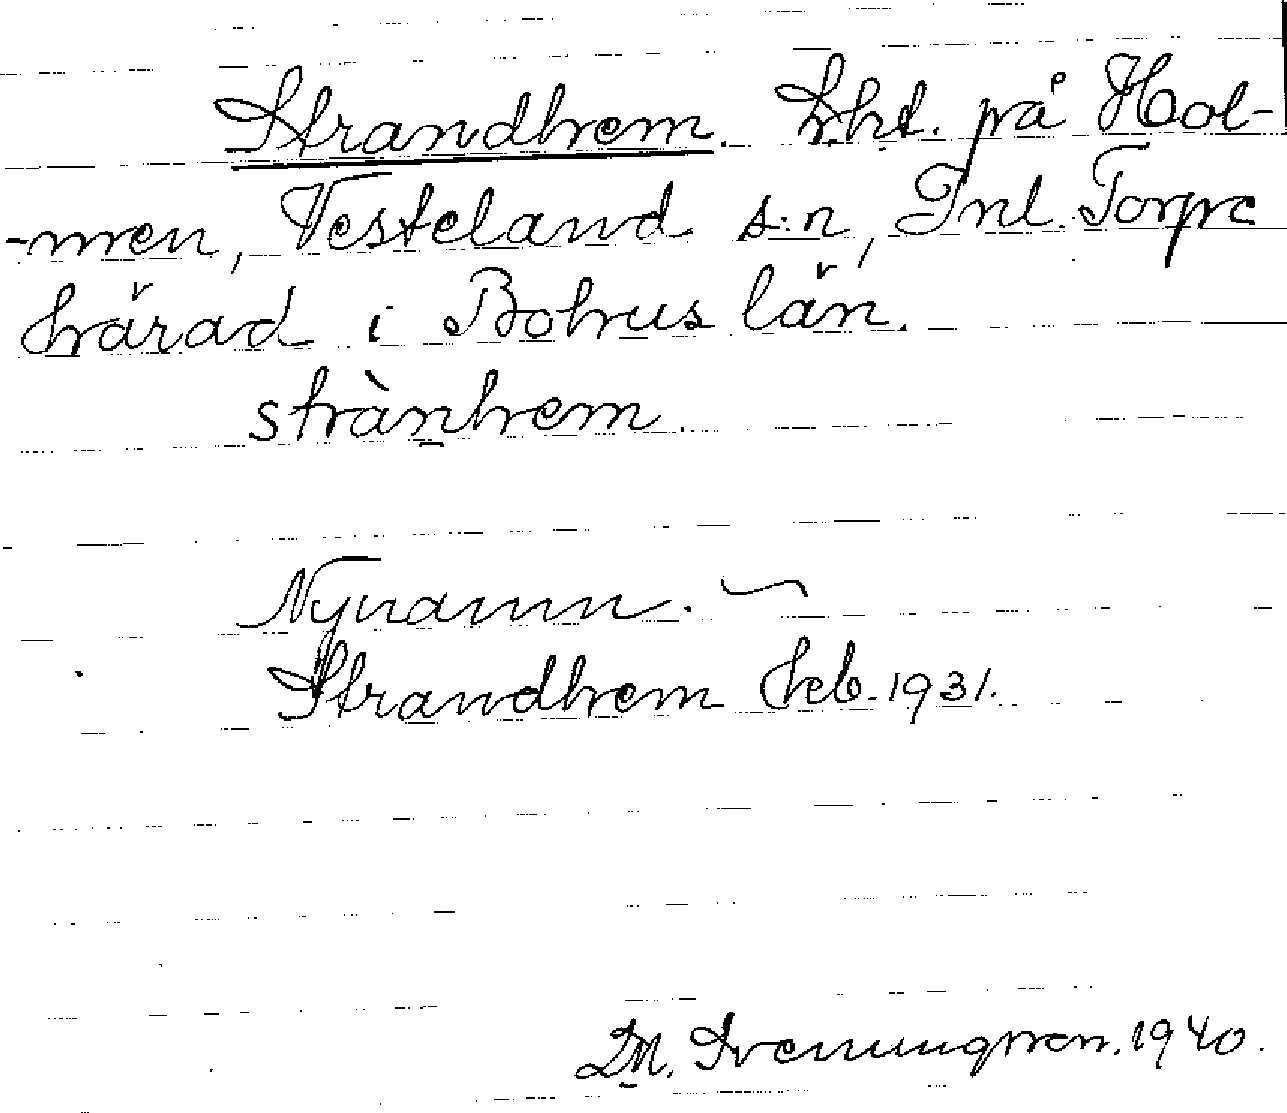 Strandhem. Lht. på Hol-
-men, Vesteland s:n, Inl. Torpe
härad i Bohus län.
strànhem
Nynamn.
Strandhem feb. 1931.
1940.